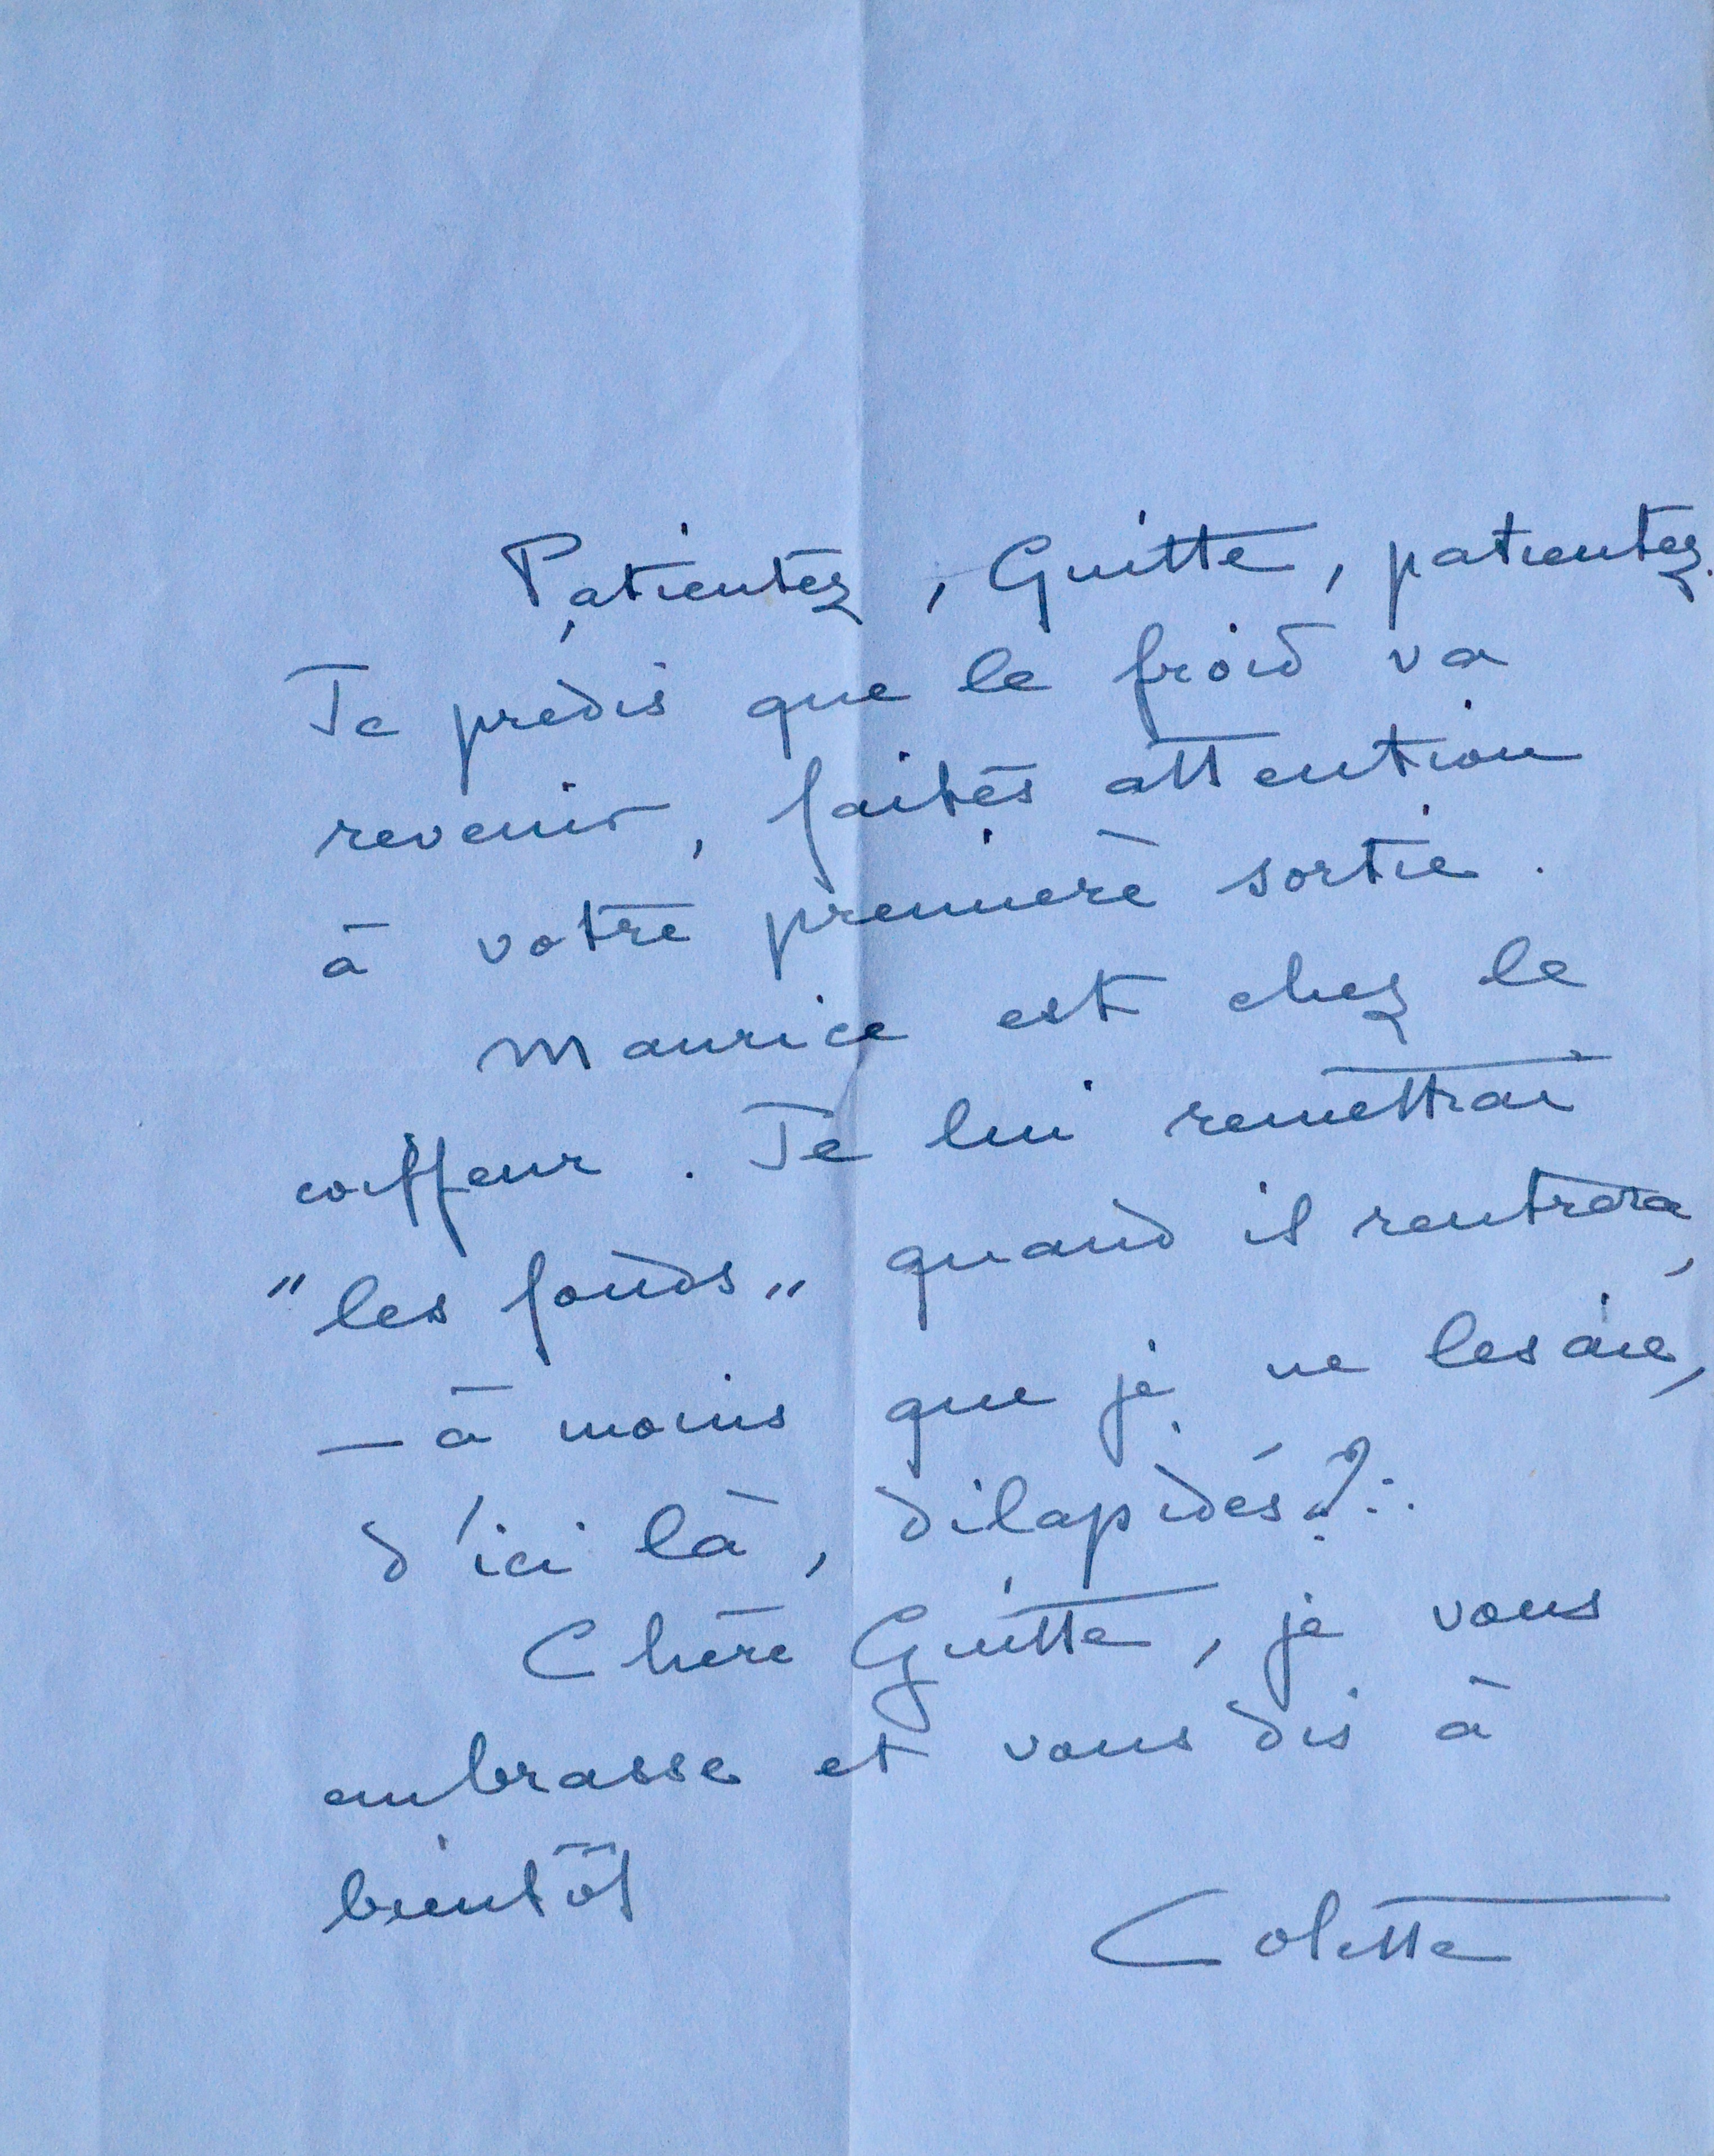 Patientez, Guitte, patientez.
Je prédis que le froid va
revenir, faites attention
à votre première sortie.
Maurice est chez le
coiffeur. Je lui remettrai
"les fonds" quand il rentrera,
— à moins que je ne les aie,
d'ici là, dilapidés?..
Chère Guitte, je vous
embrasse et vous dis à
bientôt
Colette